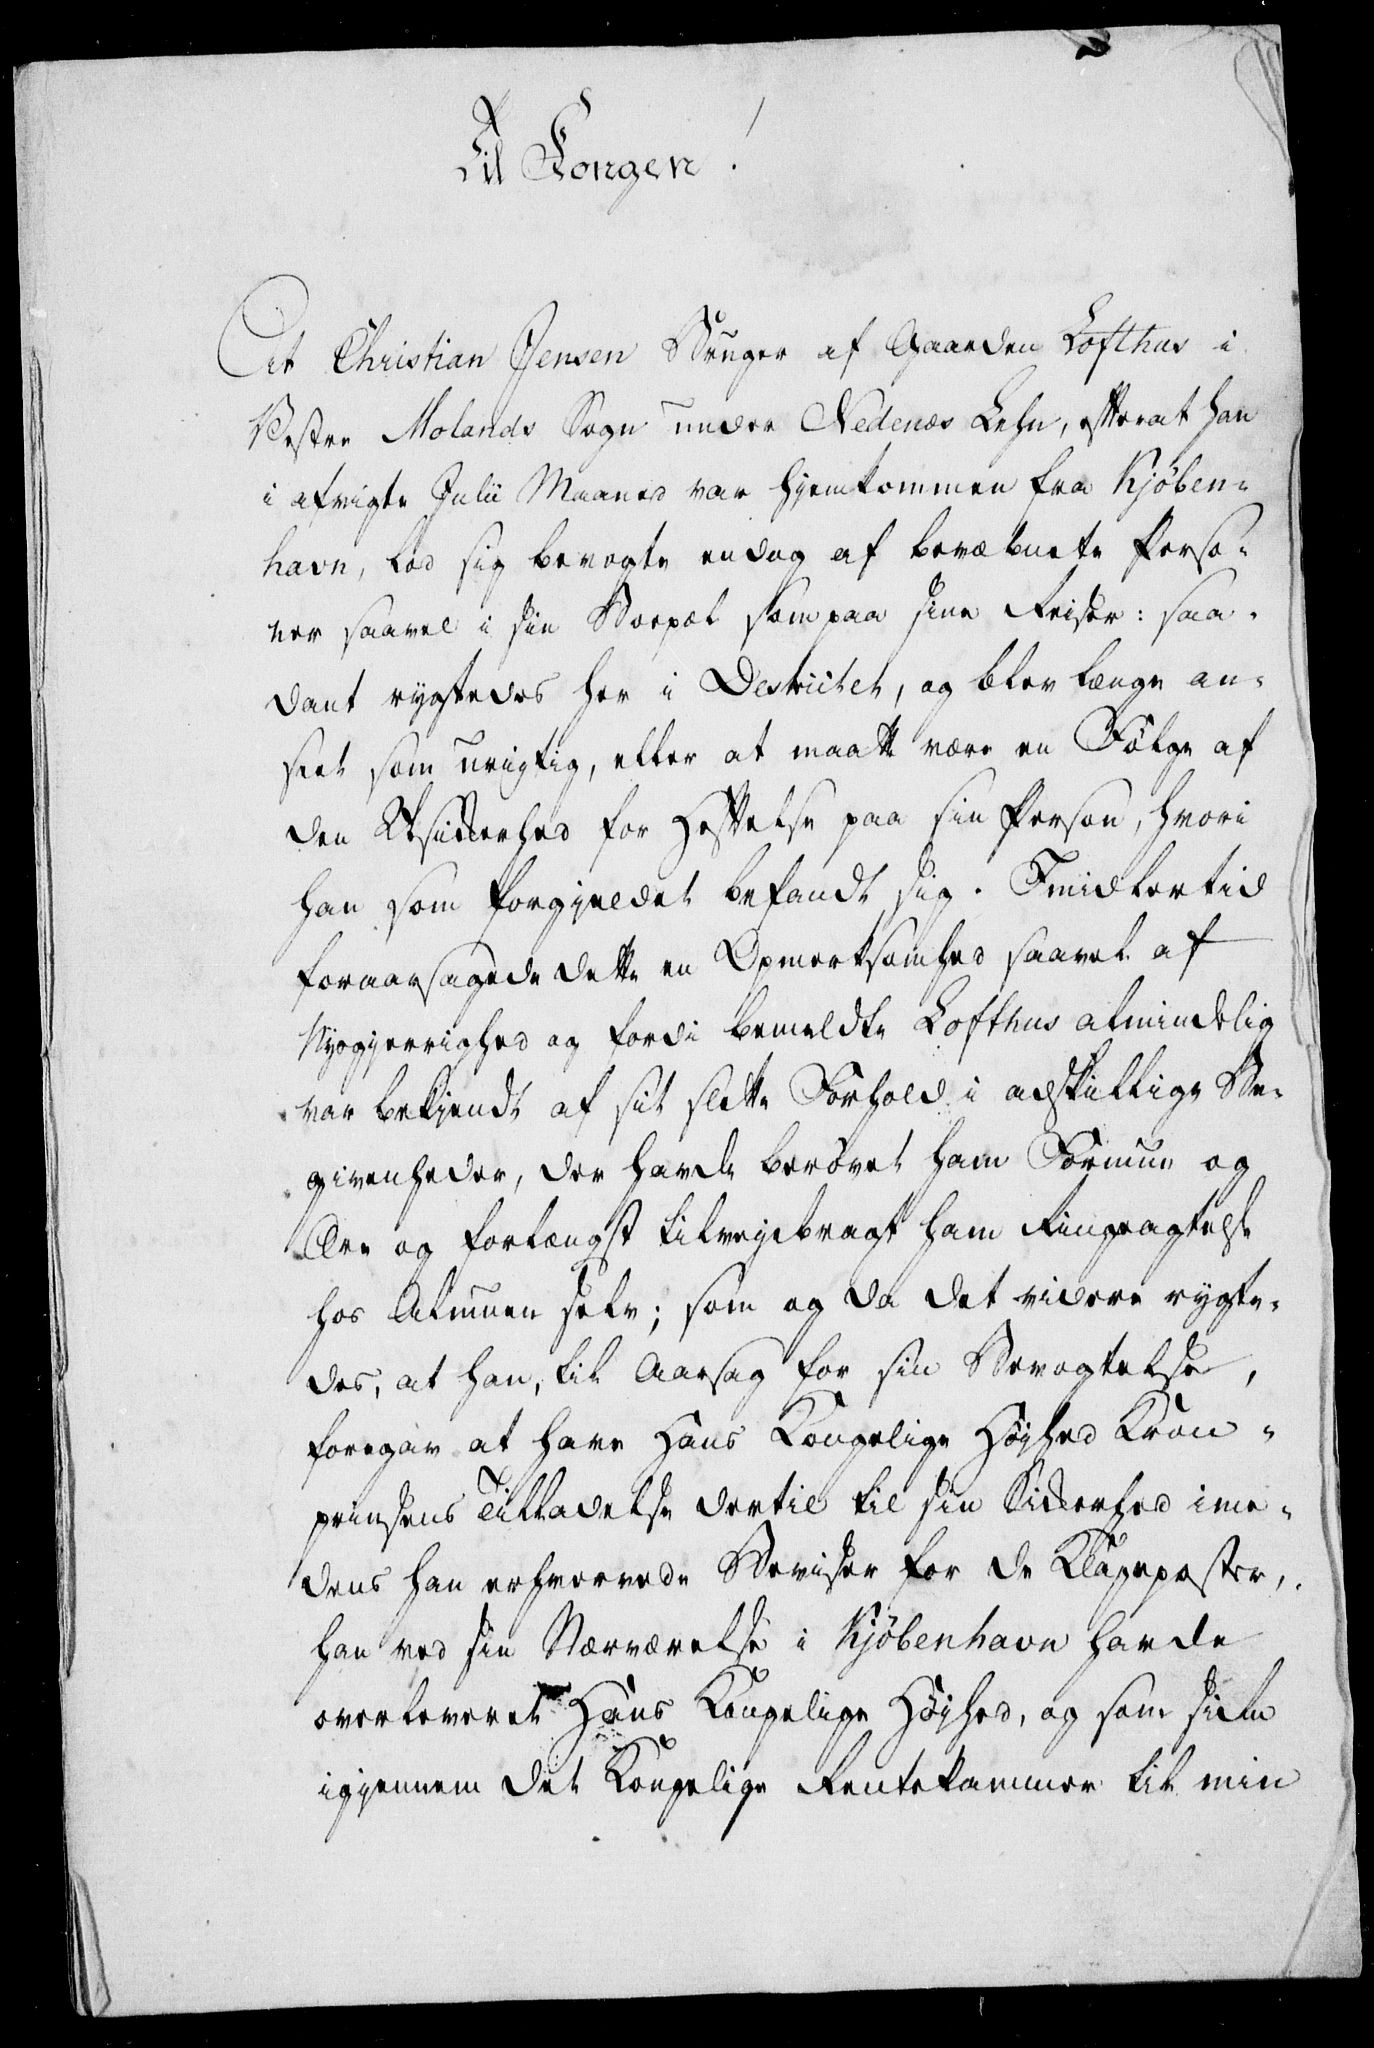 Til Kongen!
At Christian Jensen Bruger af Gaarden Lofthus i
Vestre Molands Sogn under Nedenæs Lehn, efterat han
i afvigte Julii Maaned var hjemkommen fra Kjöben-
havn, lod sig bevogte endog af bevæbnete Perso-
ner saavel i sin Boepæl som paa sine Reiser: saa-
dant rygtedes her i Destrictet, og blev længe an-
seet som urigtig, eller at maatte være en Fölge af
den Usikkerhed for Heftelse paa sin Person, hvori
han som forgjældet befandt sig. Imidlertid
foraarsagede dette en Opmerksomhed saavel af
Nysgjerrighed og fordi bemeldte Lofthus almindelig
var bekjendt af sit slette Forhold i adskillige Be-
givenheder, der havde berövet ham Formue og
Ære og forlængst tilvejebragt ham Ringeagtelse
hos Almuen selv; som og da det videre rygte-
des, at han, til Aarsag for sin Bevogtelse,
foregav at have Hans Kongelige Höjhed Kron-
prinsens Tilladelse dertil til sin Sikkerhed ime-
dens han erhvervede Beviser for de Klageposter,
han ved sin Nærværelse i Kjöbenhavn havde
overleveret Hans Kongelige Höjhed, og som siden
igjennem det Kongelige Rentekammer til min